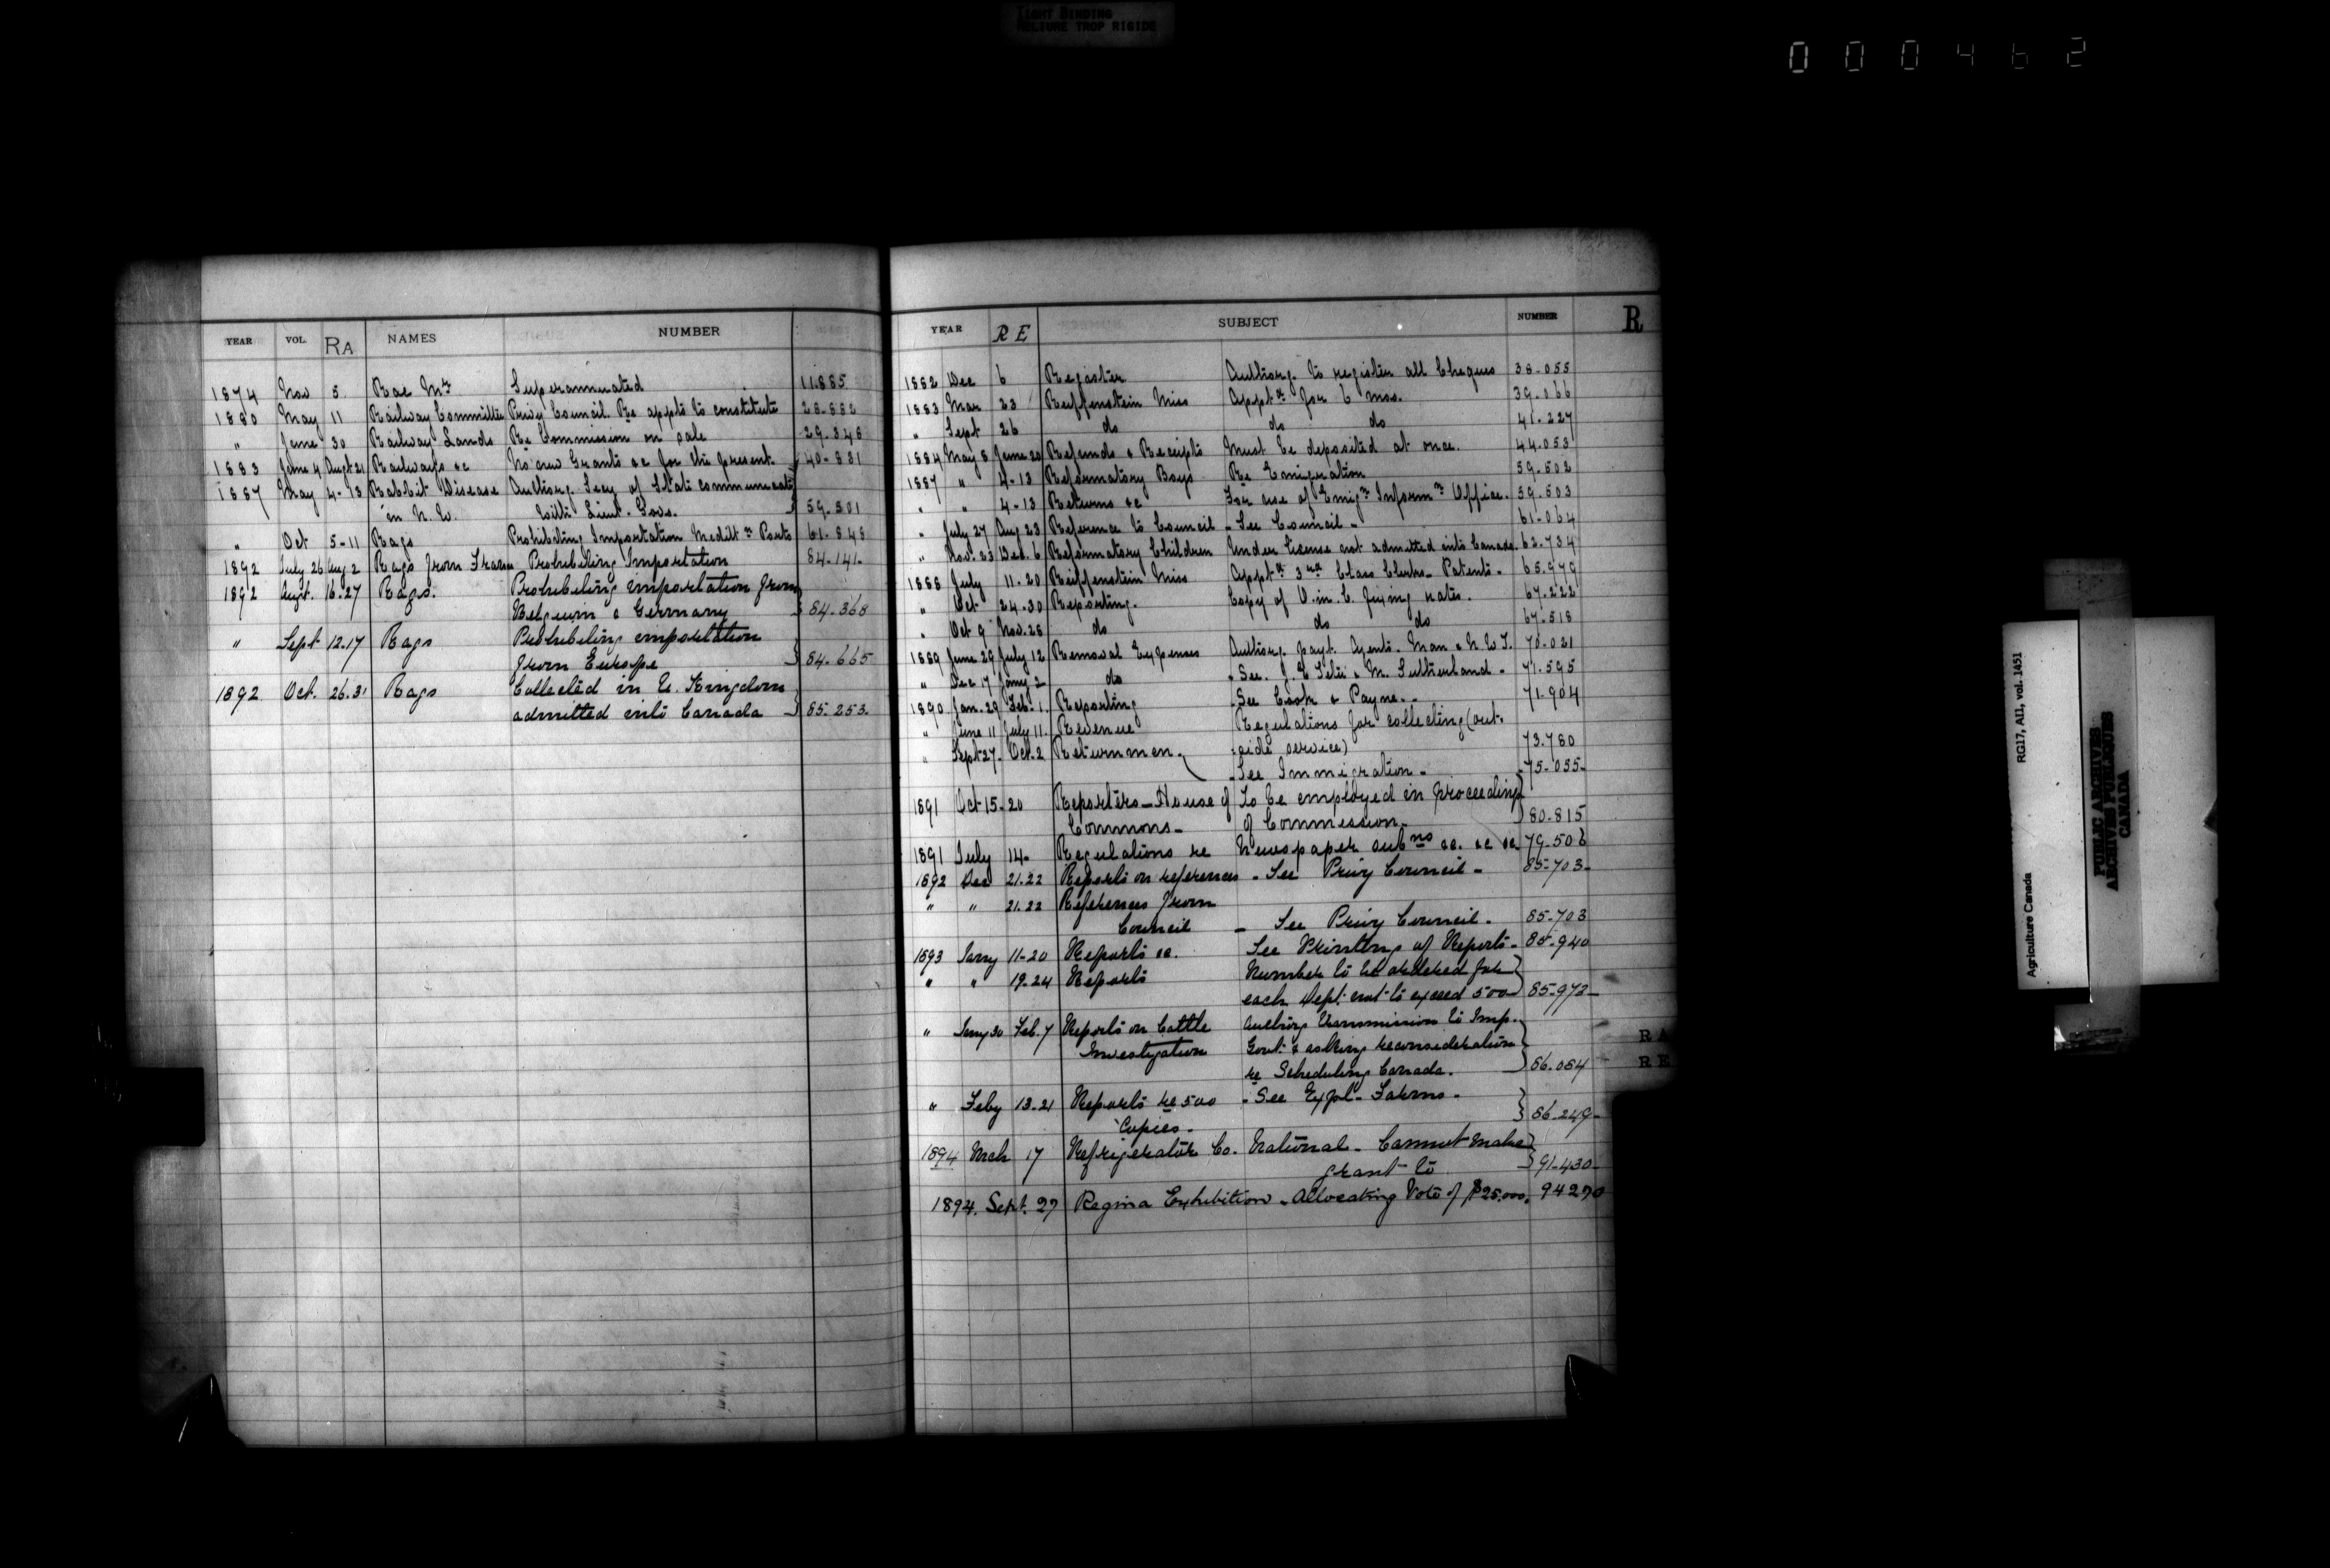 TIGHT BINDING
RELIURE TROP RIGIDE
000462
YEAR VOL. RA NAMES NUMBER
1874 Nov 5 Rae Mr Superannuated 11.885
1880 May 11 Railway Committee Privy Council. Re appts to constitute 28-882
" June 30 Railway Lands Re Commission on sale 29-348
1883 June 4 Augt 21 Railways &c No new Grants &c for the present. 40-831
1887 May 4-13 Rabbit Disease Authorg. Secy of State communicatg
in N.W. with Lieut. Govs. 59-501
" Oct 5-11 Rags Prohibiting Importation Meditn Ports 61-848
1892 July 26 Aug 2 Rags from France Prohibiting Importation 84-141-
1892 Augt. 16.27 Rags. Prohibiting importation from
Belgium & Germany } 84-368
" Sept 12.17 Rags Prohibiting importation
from Europe } 84-665
1892 Oct. 26.31 Rags Collected in U. Kingdom
admitted into Canada } 85-253.
YEAR RE SUBJECT NUMBER R
1882 Dec 6 Register Authorg. to register all Cheques 38-055
1883 Mar 23 Reiffenstein Miss Appt for 6 mos. 39.066
" Sept 26 do do do 41-227
1884 May 8 June 20 Refunds & Receipts Must be deposited at once. 44-053
1887 " 4-13 Reformatory Boys Re Emigration 59-502
" " 4-13 Returns &c For use of Emign Informn Office. 59-503
" July 27 Aug 23 Reference to Council - See Council - 61-064
" Nov. 23 Dec. 6 Reformatory Children Under license not admitted into Canada. 62-734
1888 July 11-20 Reiffenstein Miss Appt 3rd Class Clerk - Patents - 65.979
" Oct 24-30 Reporting. Copy of O.in.C. fixing rates. 67-222
" Oct 9 Nov. 28 do do do 67-518
1889 June 29 July 12 Removal Expenses Authorg. payt. Agents. Man & N.W.T. 70-021
" Dec 17 Jany 2 do - See. J. E. Tetu & M. Sutherland - 71.595
1890 Jan. 29 Feb. 1. Reporting - See Cook & Payne. - 71-904
" June 11 July 11. Revenue Regulations for collecting (out-
side service) 73.780
" Sept 27. Oct. 2 Returnmen. - See Immigration - 75-035-
1891 Oct 15-20 Reporters - House of Commons - To be employed in proceedings
of Commission - } 80.815
1891 July 14- Regulations re Newspaper subns &c. &c &c 79-506
1892 Dec 21.22 Reports on references - See Privy Council - 85-703-
" " 21.22 References from
Council - See Privy Council - 85-703
1893 Jany 11-20 Reports &c. See Printing of Reports - 85-940
" " 19-24 Reports Number to be ordered for
each Dept. not to exceed 500 } 85-973-
" Jany 30 Feb. 7 Reports on Cattle Authorg transmission to Imp.
Investigation Govt. & asking reconsideration
re Scheduling Canada. } 86.084
" Feby 13-21 Reports re 500 - See Expl- Farms -
Copies - } 86-249-
1894 Mch 17 Refrigerator Co. National - Cannot make
grant to } 91-430-
1894. Sept. 27 Regina Exhibition - Allocating Vote of $25.000. 94270
RA
RE
RG17, AII, vol. 1451
Agriculture Canada
PUBLIC ARCHIVES
ARCHIVES PUBLIQUES
CANADA